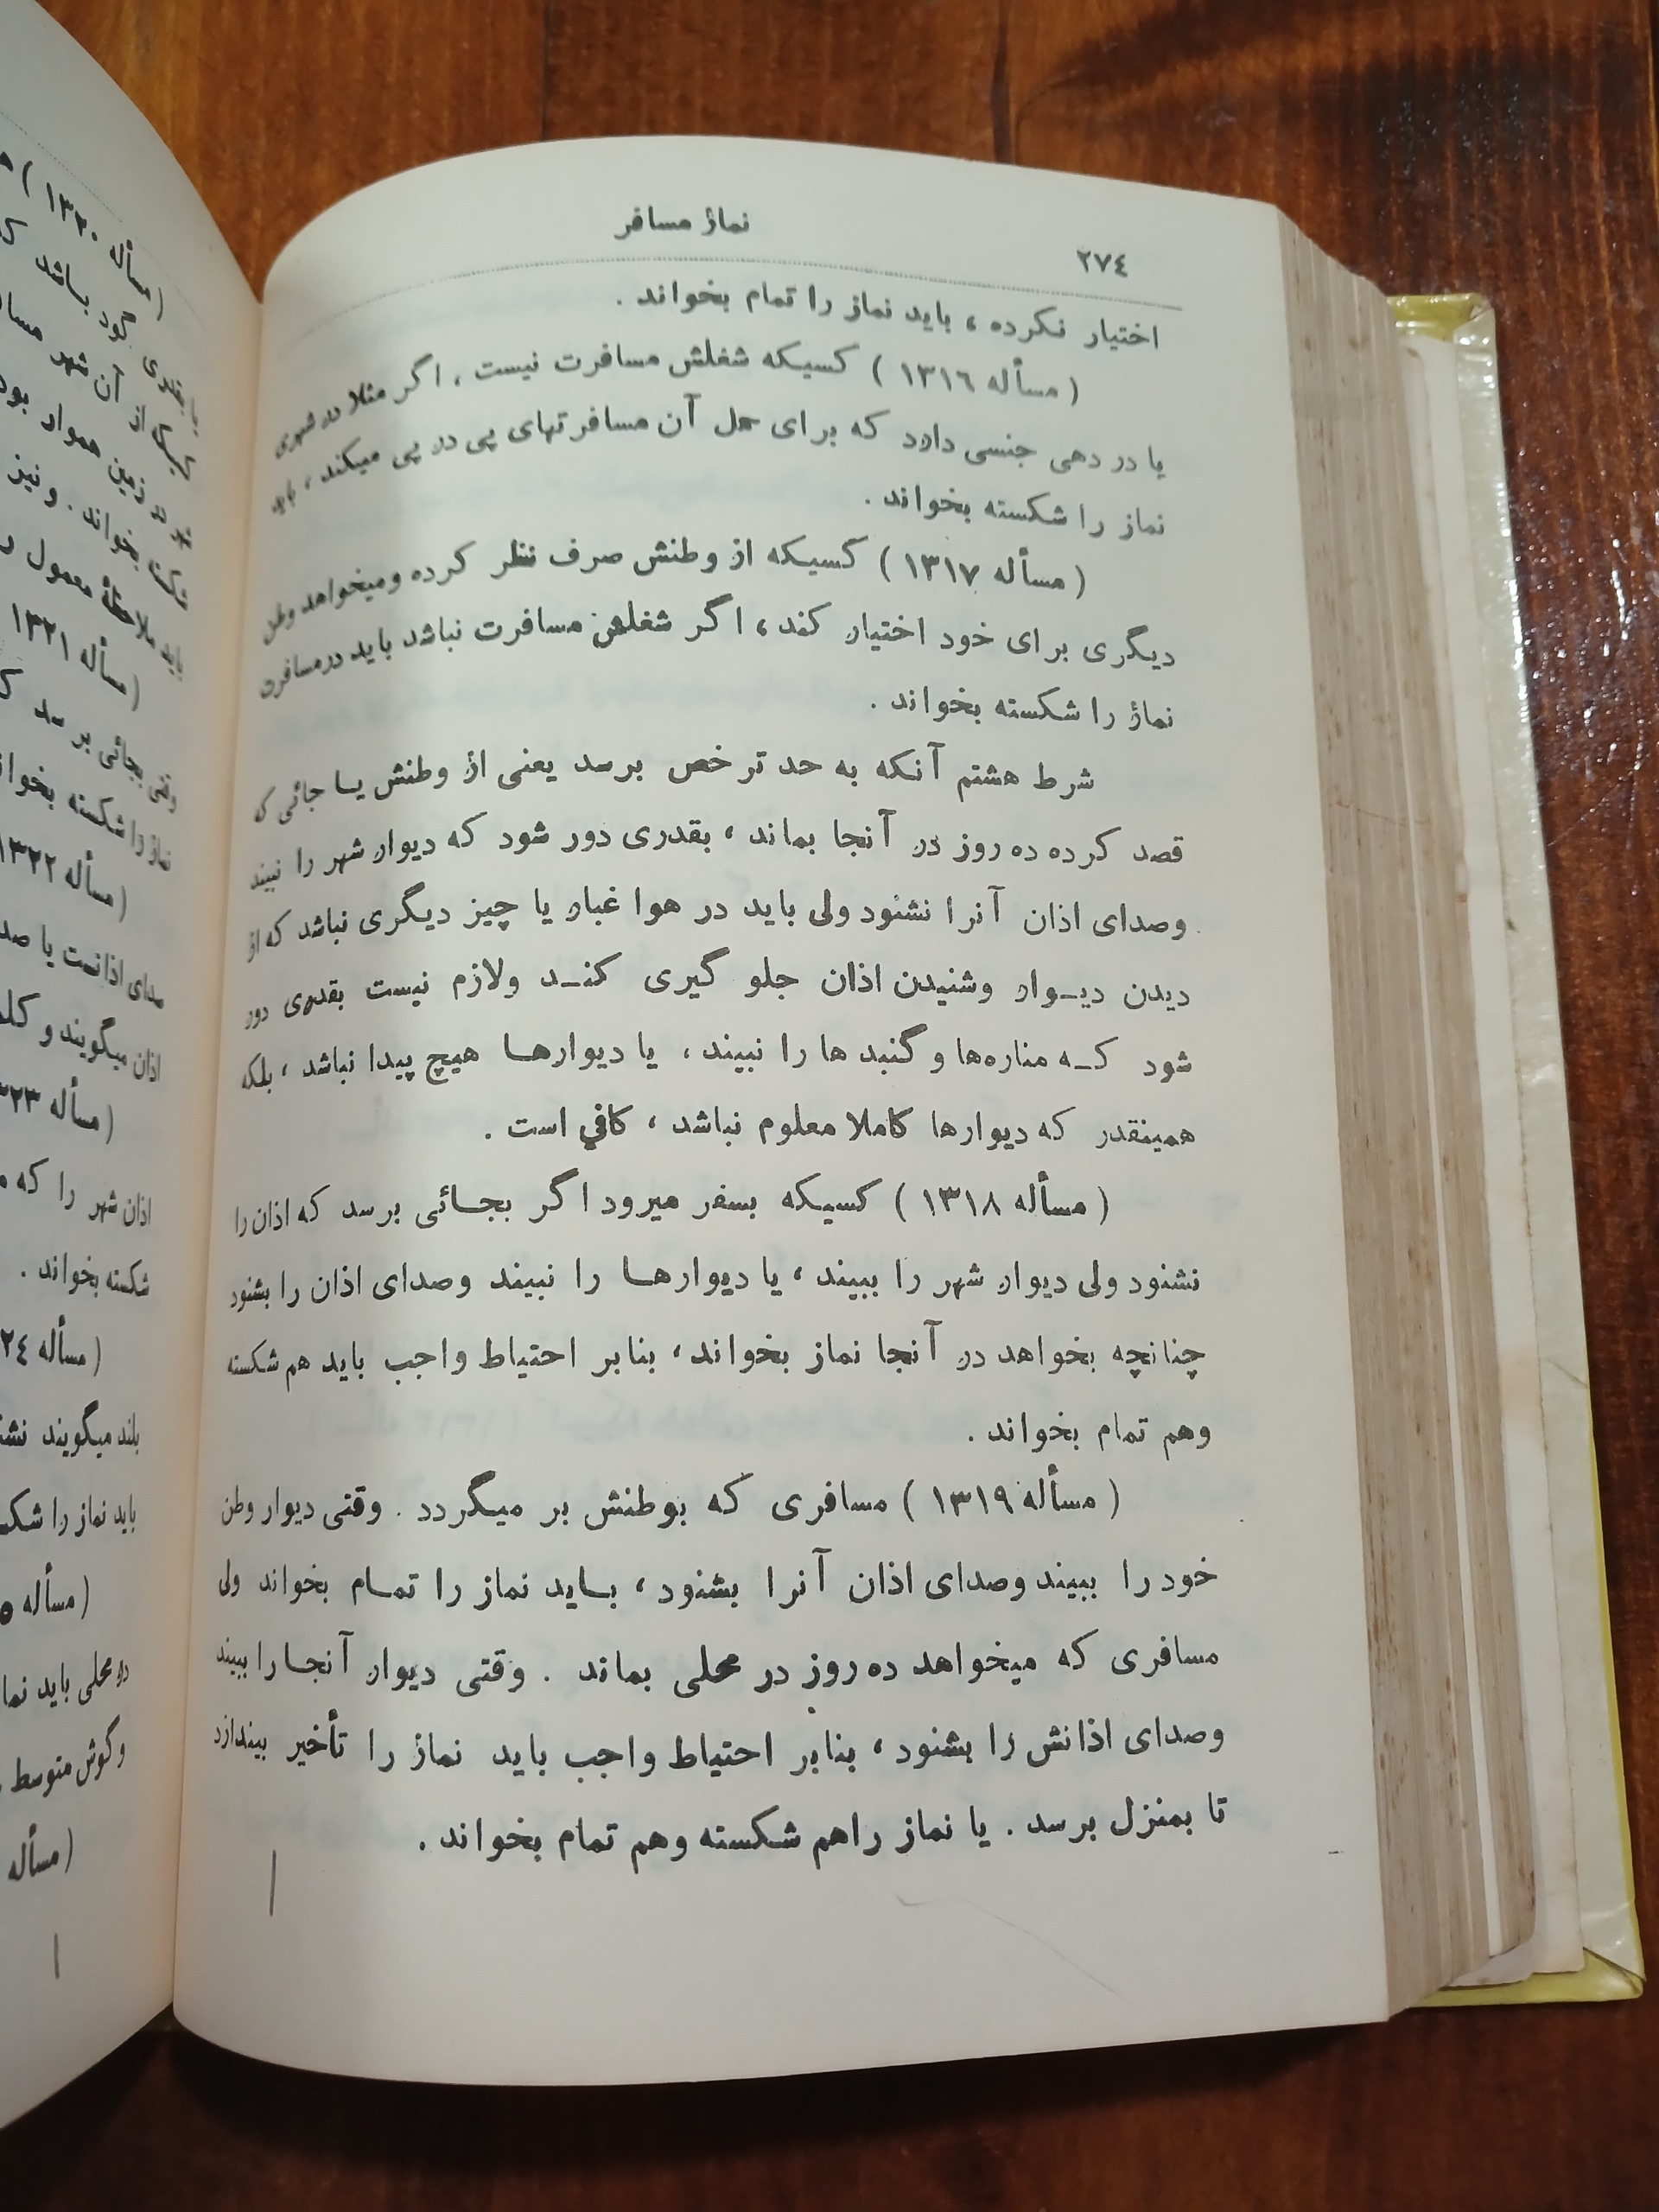 نماز مسافر
۲۷٤
اختیار نکرده ، باید نماز را تمام بخواند .
( مسأله ۱۳۱٦ ) کسیکه شغلش مسافرت نیست ، اگر مثلا در شهری
یا در دهی جنسی دارد که برای حمل آن مسافرتهای پی در پی میکند ، باید
نماز را شکسته بخواند .
( مسأله ۱۳۱۷ ) کسیکه از وطنش صرف نظر کرده ومیخواهد وطن
دیگری برای خود اختیار کند ، اگر شغلش مسافرت نباشد باید درمسافرت
نماز را شکسته بخواند .
شرط هشتم آنکه به حد ترخص برسد یعنی از وطنش یـا جائی که
قصد کرده ده روز در آنجا بماند ، بقدری دور شود که دیوار شهر را نبیند
وصدای اذان آنرا نشنود ولی باید در هوا غبار یا چیز دیگری نباشد که از
دیدن دیـوار وشنیدن اذان جلو گیری کنـد ولازم نیست بقدری دور
شود کـه مناره‌ها و گنبد ها را نبیند ، یا دیوارهـا هیچ پیدا نباشد ، بلکه
همینقدر که دیوارها کاملا معلوم نباشد ، کافي است .
( مسأله ۱۳۱۸ ) کسیکه بسفر میرود اگر بجـائی برسد که اذان را
نشنود ولی دیوار شهر را ببیند ، یا دیوارهـا را نبیند وصدای اذان را بشنود
چنانچه بخواهد در آنجا نماز بخواند ، بنابر احتیاط واجب باید هم شکسته
وهم تمام بخواند .
( مسأله ۱۳۱۹ ) مسافری که بوطنش بر میگردد . وقتی دیوار وطن
خود را ببیند وصدای اذان آنرا بشنود ، بـاید نماز را تمـام بخواند ولی
مسافری که میخواهد ده روز در محلی بماند . وقتی دیوار آنجـا را ببیند
وصدای اذانش را بشنود ، بنابر احتیاط واجب باید نماز را تأخیر بیندازد
تا بمنزل برسد . یا نماز راهم شکسته وهم تمام بخواند .
(مسأله ۱۳۲۰ )
گود باشد
از آن شهر
زمین هموار بود
بخواند . و نیز
باید ملاحظهٔ معمول
(مسأله ۱۳۲۱
وقتی بجائی برسد
نماز را شکسته
(مسأله ۱۳۲۲
صدای اذانست یا
اذان میگویند و
(مسأله
اذان شهر را که
شکسته بخواند .
(مسأله
بلند میگویند
باید نماز را
(مسأله
در محلی باید
وگوش متوسط
(مسأله